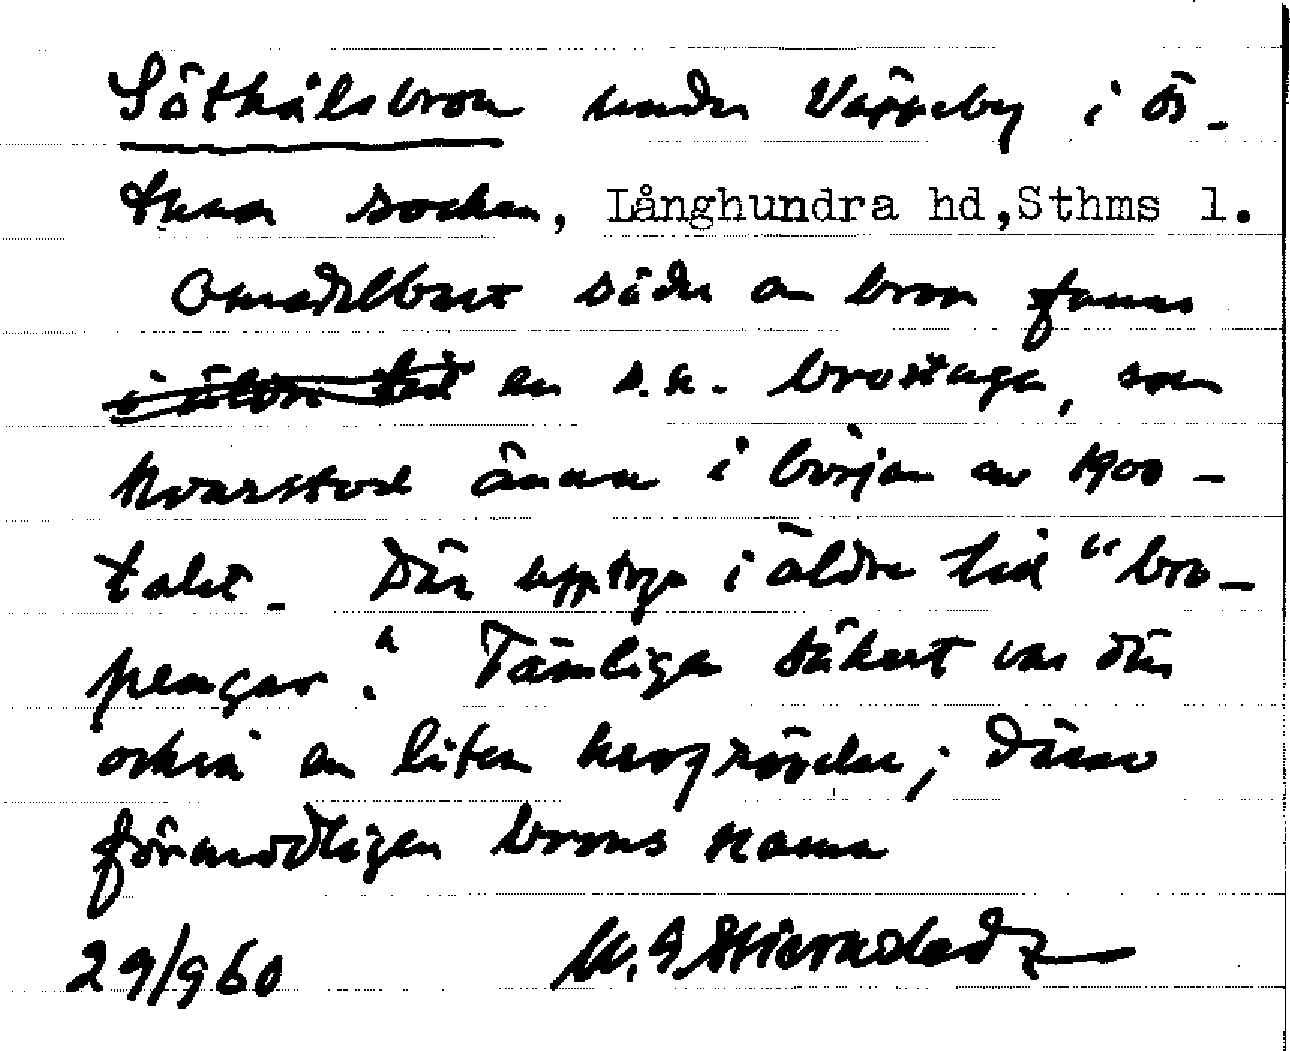 Söthålsbron under Väppeby i Ös-
tuna socken, Långhundra hd,Sthms l.
Omedelbart söder om bron fanns
i äldre tid en s.k. brostuga, som
kvarstod ännu i början av 1900-
talet. Där upptogs i äldre tid "bro-
pengar". Tämligen säkert var där
också en liten krogrörelse; därav
förmodligen brons namn
29/9 60 W. G. Stiernstedt